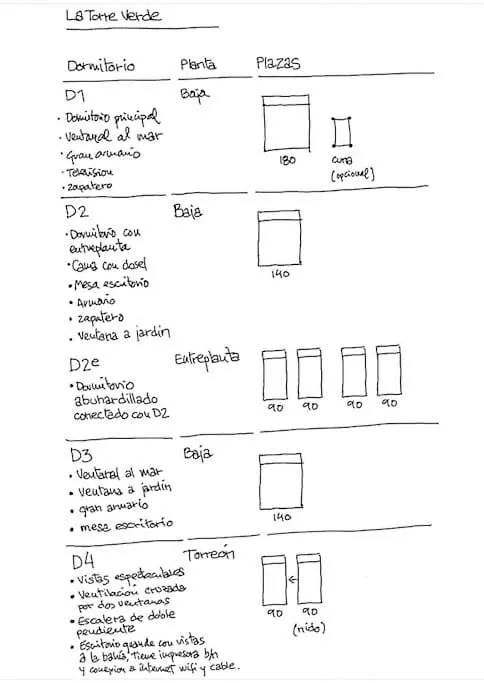 La Torre Verde
Dormitorio Planta Plazas
D1 Baja
• Dormitorio principal
• Ventanal al mar
• Gran armario
• Television
• zapatero
180 cuna
(opcional)
D2 Baja
• Dormitorio con
entreplanta
• Cama con dosel
• Mesa escritorio
• Armario
• zapatero
• Ventana a jardín
140
D2e Entreplanta
• Dormitorio
abuhardillado
conectado con D2
90 90 90 90
D3 Baja
• Ventanal al mar
• ventana a jardín
• gran armario
• mesa escritorio
140
D4 Torreón
• Vistas espectaculares
• Ventilación cruzada
por dos ventanas
• Escalera de doble
pendiente
• Escritorio grande con vistas
a la bahía, tiene impresora b/n
y conexion a internet wifi y cable.
90 90
(nido)